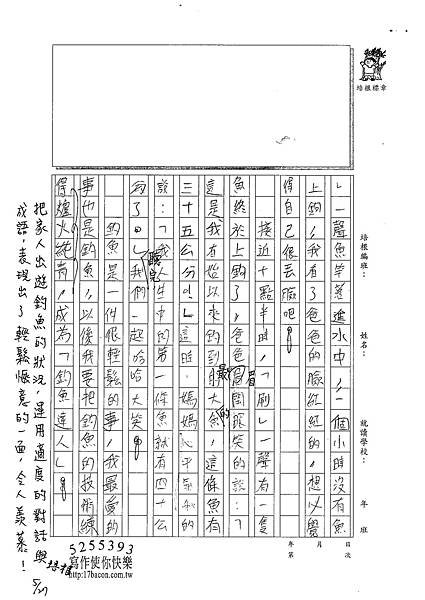 培根標章
培根編班：
姓名：
就讀學校：
年　班
第　次
年　月　日
」一聲魚竿落進水中，一個小時沒有魚
上鉤，我看了爸爸的臉紅紅的，想必覺
得自己很丟臉吧！
接近十點半時，「刷」一聲有一隻
魚終於上鉤了，爸爸眉開眼笑的說：「
這是我有始以來釣到最大的魚，這條魚有
三十五公分。」這時，媽媽心平氣和的
說：「我人生中的第一條魚就有四十公
分了。」我們聽完一起哈哈大笑！
釣魚是一件很輕鬆的事，我最愛的
事也是釣魚，以後我要把釣魚的技術練
得爐火純青，成為「釣魚達人」！
把家人出遊釣魚的狀況，運用適度的對話與
成語，表現出了輕鬆愜意的一面，令人羨慕！
培根
5/27
5255393
寫作使你快樂
http://17bacon.com.tw